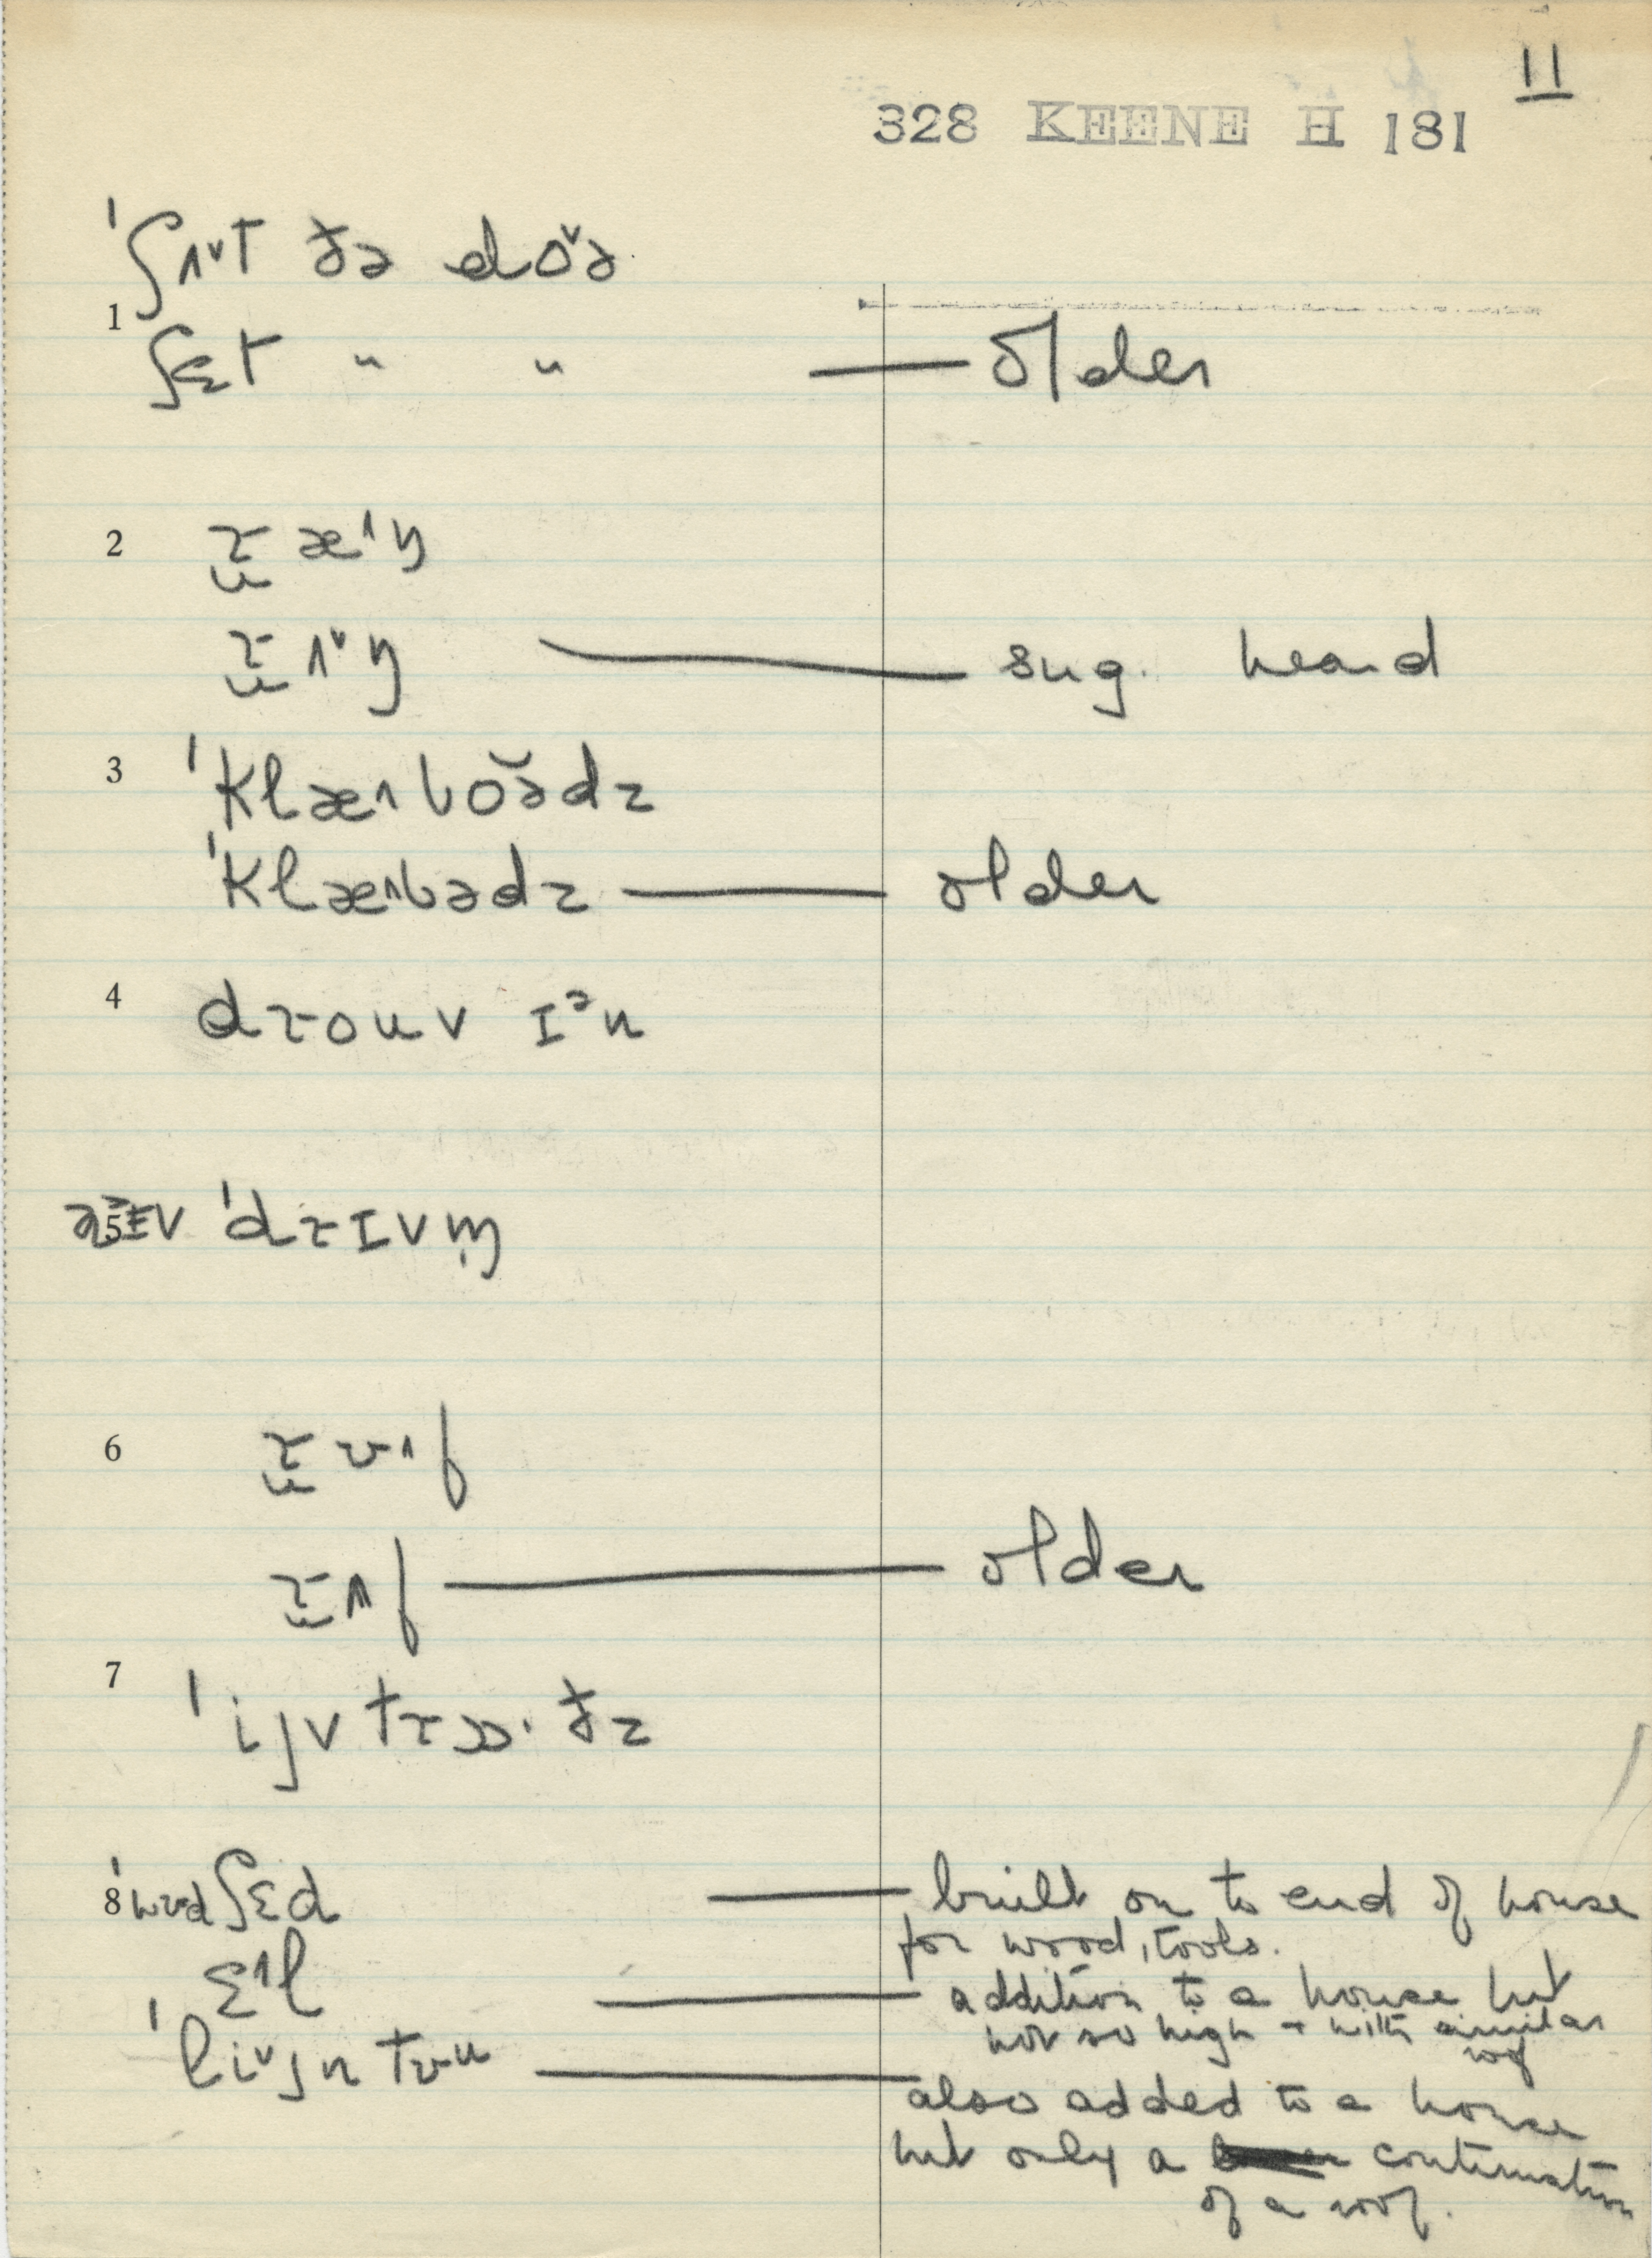 11
328 KEENE H 181
'ʃʌ˅t ðə doə̆
1
ʃɛt " " — older
2 ɹ̯æ˄ɪŋ
— sug. heard
3 'klæ˄boə̆dz
'klæ˄bədz — older
4 dɾouv ɪᵊn
5 'dɾɪvm̩
6
— older
7 'ijv
8 'wʊdʃɛd — built on to end of house
for wood, tools.
ɛ˄l — addition to a house but
not so high + with similar
roof
'li˅jn tʊu — also added to a house
but only a continuation
of a roof.